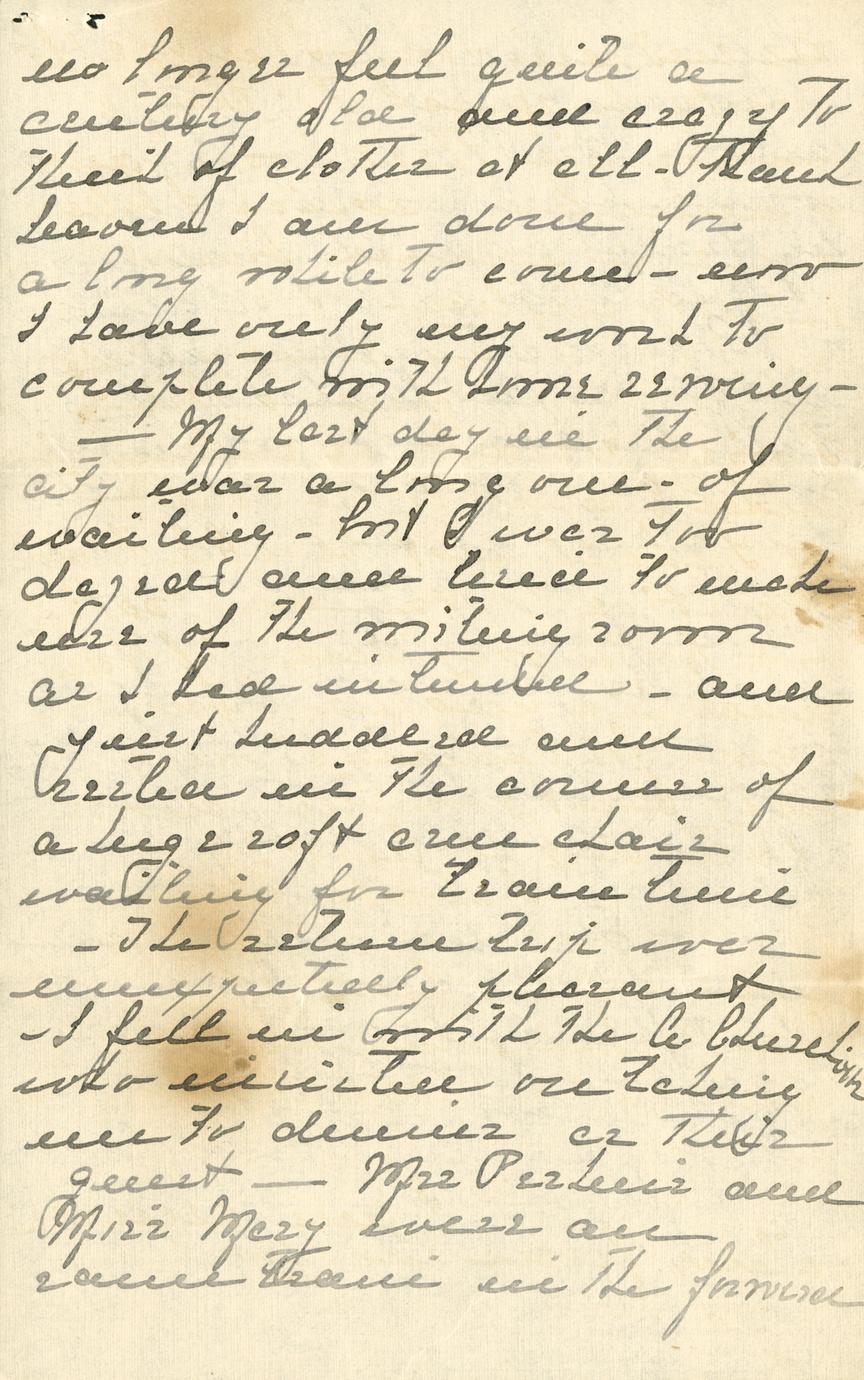 no longer feel quite a
century old and crazy to
think of clothes at all - Thank
heaven I am done for
a long while to come - now
I have only my work to
complete with some sewing -
— My last day in the
city was a long one - of
waiting - but I was too
dazed and tired to make
use of the writing room
as I had intended - and
just huddled and
rested in the corner of
a huge soft arm chair
waiting for train time
- The return trip was
unexpectedly pleasant
- I fell in with the
who insisted on taking
me to dinner as their
guest — Mrs Perkins and
Miss Mary were on
same train in the forward